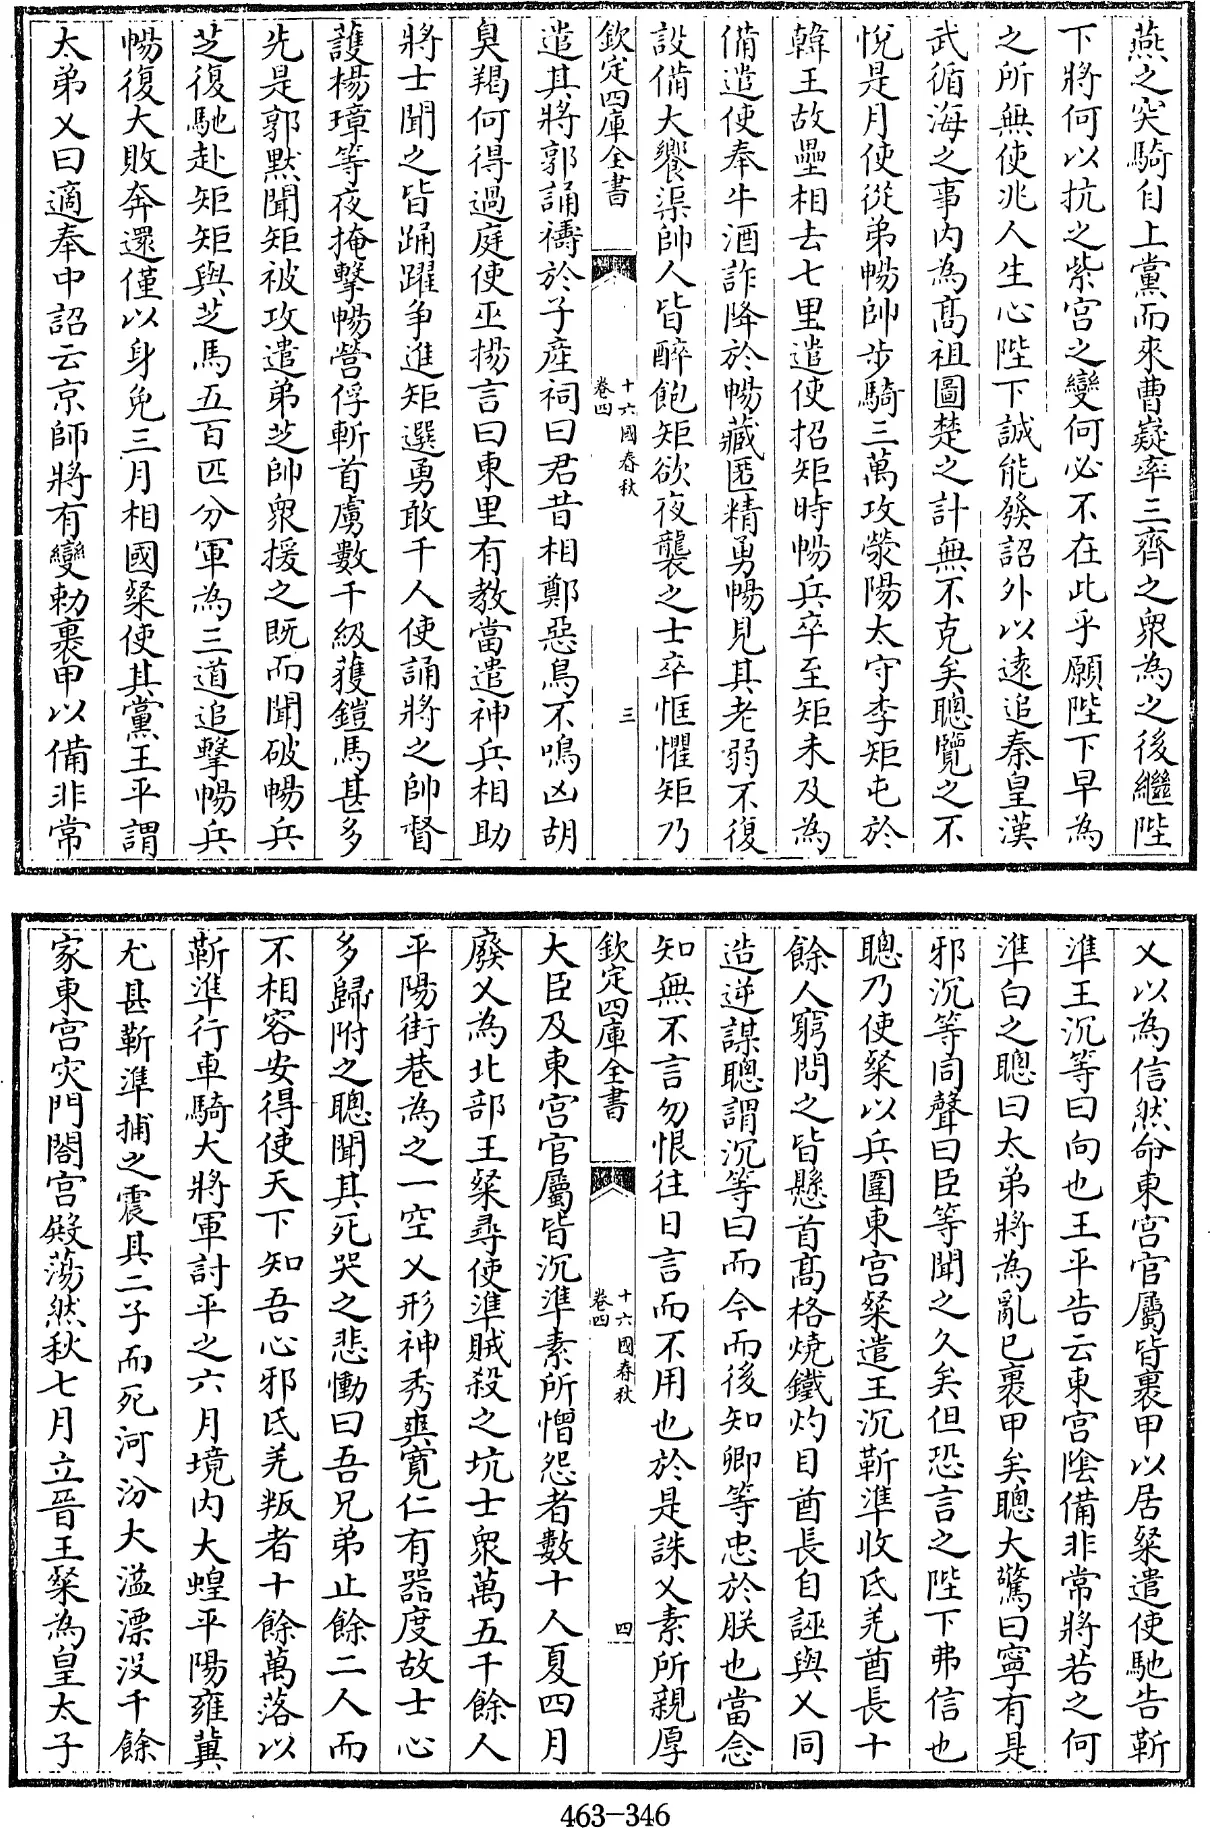 燕之突騎自上黨而來曹嶷率三齊之衆為之後繼陛
下將何以抗之紫宫之變何必不在此乎願陛下早為
之所無使兆人生心陛下誠能發詔外以逺追秦皇漢
武循海之事内為髙祖圖楚之計無不克矣聰覽之不
悅是月使從弟暢帥歩騎三萬攻滎陽太守李矩屯於
韓王故壘相去七里遣使招矩時暢兵卒至矩未及為
備遣使奉牛酒詐降於暢藏匿精勇暢見其老弱不復
設備大饗渠帥人皆醉飽矩欲夜襲之士卒恇懼矩乃
欽定四庫全書
十六國春秋
卷四
三
遣其將郭誦禱於子產祠曰君昔相鄭惡鳥不鳴凶胡
臭羯何得過庭使巫揚言曰東里有教當遣神兵相助
將士聞之皆踊躍争進矩選勇敢千人使誦將之帥督
護楊璋等夜掩擊暢營俘斬首虜數千級獲鎧馬甚多
先是郭黙聞矩被攻遣弟芝帥衆援之既而聞破暢兵
芝復馳赴矩矩與芝馬五百匹分軍為三道追擊暢兵
暢復大敗奔還僅以身免三月相國粲使其黨王平謂
太弟乂曰適奉中詔云京師將有變勅裏甲以備非常
乂以為信然命東宫官屬皆裏甲以居粲遣使馳告靳
準王沉等曰向也王平告云東宫隂備非常將若之何
準白之聰曰太弟將為亂已裏甲矣聰大驚曰寧有是
邪沉等同聲曰臣等聞之久矣但恐言之陛下弗信也
聰乃使粲以兵圍東宫粲遣王沉靳準收氐羌酋長十
餘人窮問之皆懸首髙格燒鐵灼目酋長自誣與乂同
造逆謀聰謂沉等曰而今而後知卿等忠於朕也當念
知無不言勿恨往日言而不用也於是誅乂素所親厚
欽定四庫全書
十六國春秋
卷四
四
大臣及東宫官屬皆沉準素所憎怨者數十人夏四月
廢乂為北部王粲尋使準賊殺之坑士衆萬五千餘人
平陽街巷為之一空乂形神秀爽寛仁有器度故士心
多歸附之聰聞其死哭之悲慟曰吾兄弟止餘二人而
不相容安得使天下知吾心邪氐羌叛者十餘萬落以
靳準行車騎大將軍討平之六月境内大蝗平陽雍冀
尤甚靳準捕之震其二子而死河汾大溢漂没千餘
家東宫灾門閤宫殿蕩然秋七月立晉王粲為皇太子
463-346